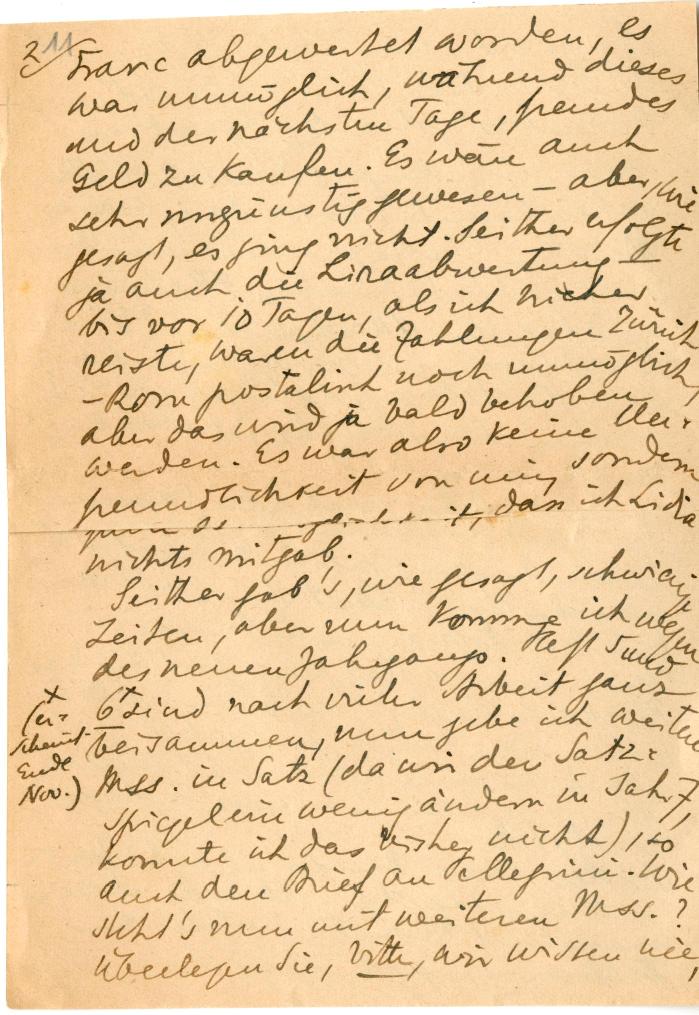 2) 11
Franc abgewertet worden, es
war unmöglich, während dieses
und der nächsten Tage, fremdes
Geld zu kaufen. Es wäre auch
sehr ungünstig gewesen – aber, wie
gesagt, es ging nicht. Seither erfolgte
ja auch die Liraabwertung –
bis vor 10 Tagen, als ich hieher
reiste, waren die Zahlungen Zürich
– Rom postalisch noch unmöglich,
aber das wird ja bald behoben
werden. Es war also keine Un-
freundlichkeit von mir, sondern
dass ich Lidia
nichts mitgab.
Seither gab's, wie gesagt, schwierige
Zeiten, aber nun komme ich wegen
des neuen Jahrgangs. Heft 5 und
6+ sind nach vieler Arbeit ganz
beisammen, nun gebe ich weitere
Mss. in Satz (da wir den Satz-
spiegel ein wenig ändern in Jahr 7,
konnte ich das bisher nicht), so
auch den Brief an Pellegrini. Wie
steht's nun mit weiteren Mss.?
Überlegen Sie, bitte, wir wissen nie,
+
(er-
scheint
Ende
Nov.)